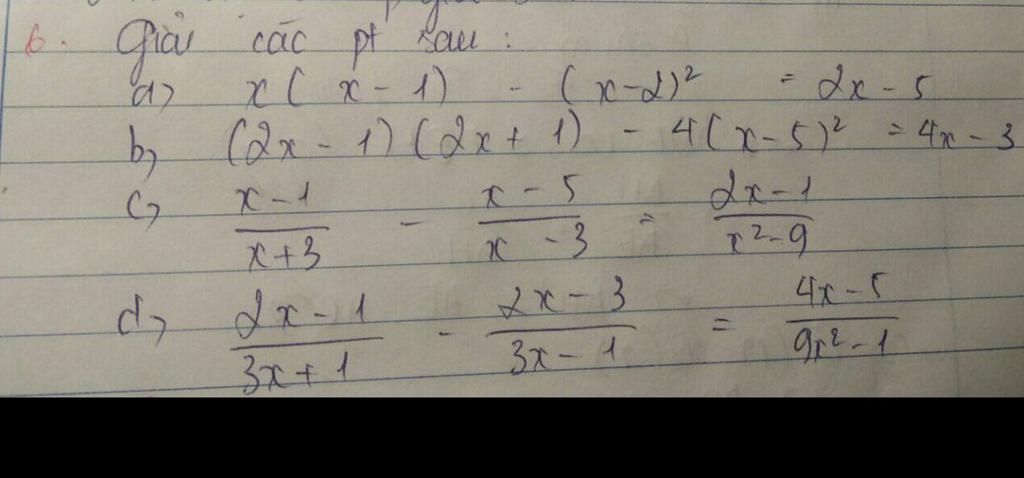 6. Giải các pt sau :
a) x( x - 1) - (x-2)² = 2x - 5
b) (2x - 1)(2x + 1) - 4(x-5)² = 4x - 3
c) \frac{x-1}{x+3} - \frac{x-5}{x-3} = \frac{2x-1}{x²-9}
d) \frac{2x-1}{3x+1} - \frac{2x-3}{3x-1} = \frac{4x-5}{9x²-1}